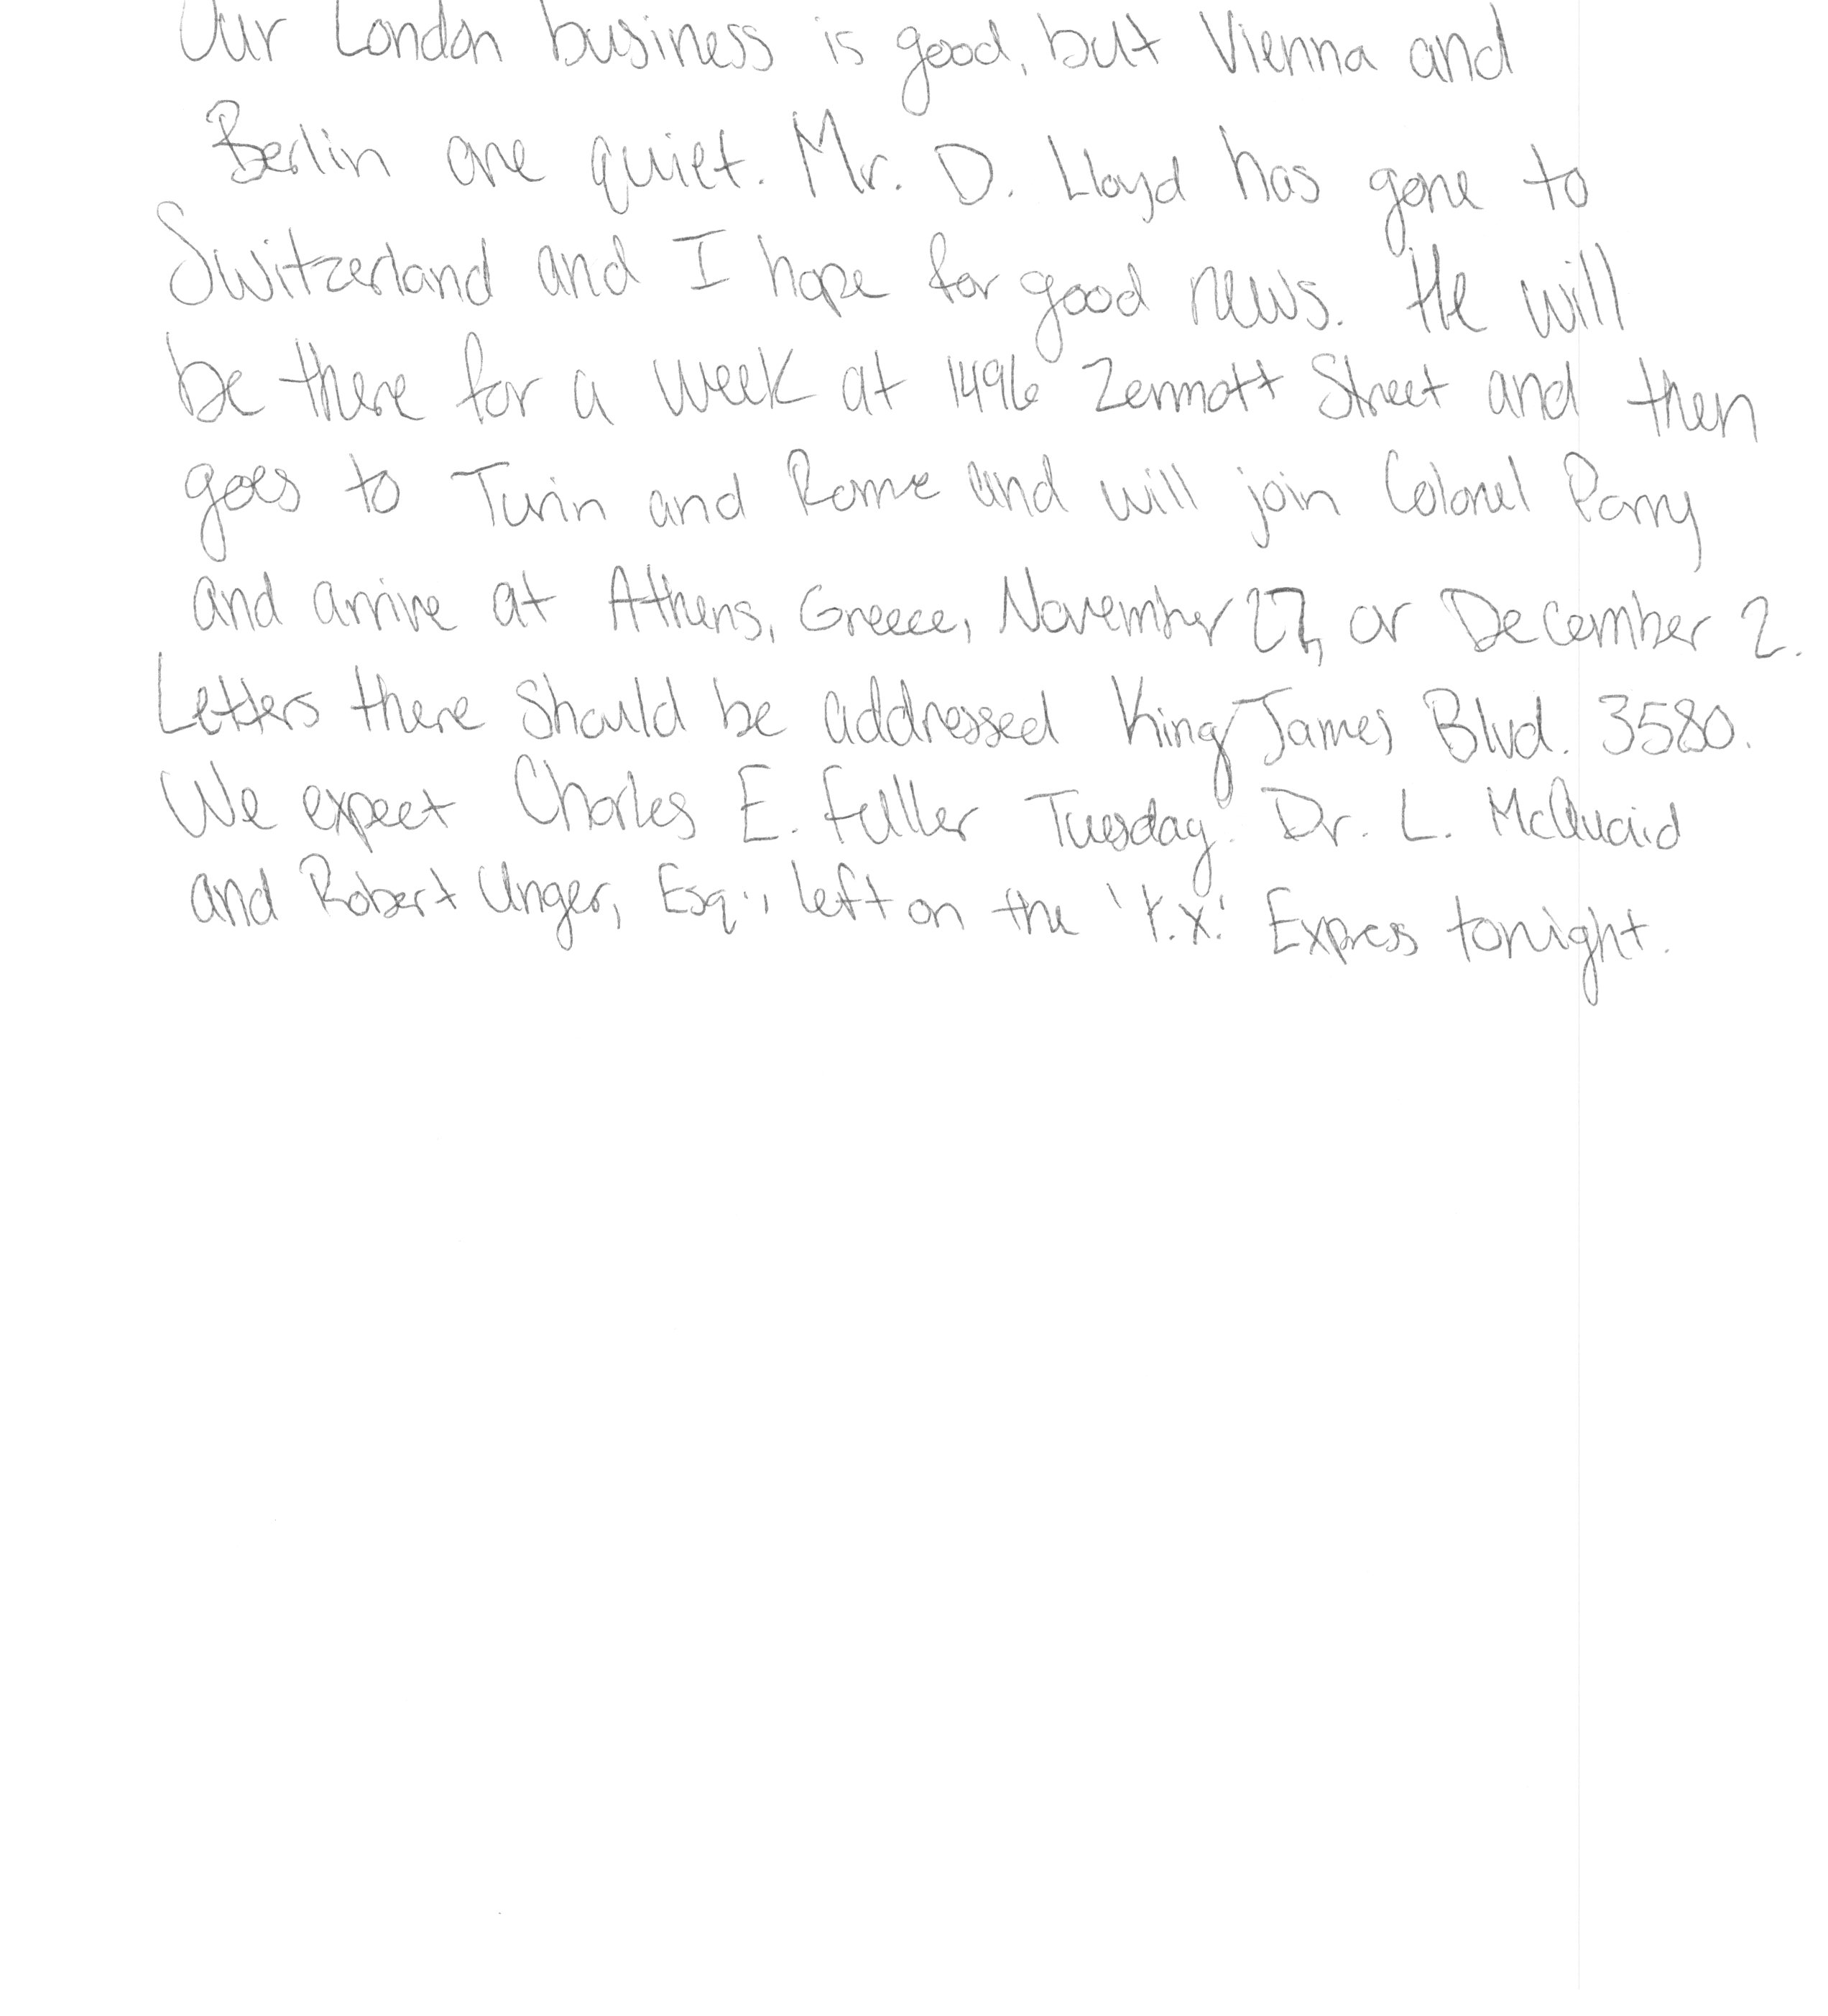 Our London business is good, but Vienna and
Berlin are quiet. Mr. D. Lloyd has gone to
Switzerland and I hope for good news. He will
be there for a week at 1496 Zermott Street and then
goes to Turin and Rome and will join Colonel Parry
and arrive at Athens, Greece, November 27, or December 2.
Letters there should be addressed King James Blvd. 3580.
We expect Charles E. Fuller Tuesday. Dr. L. McQuaid
and Robert Unger, Esq., left on the 'Y.X.' Express tonight.